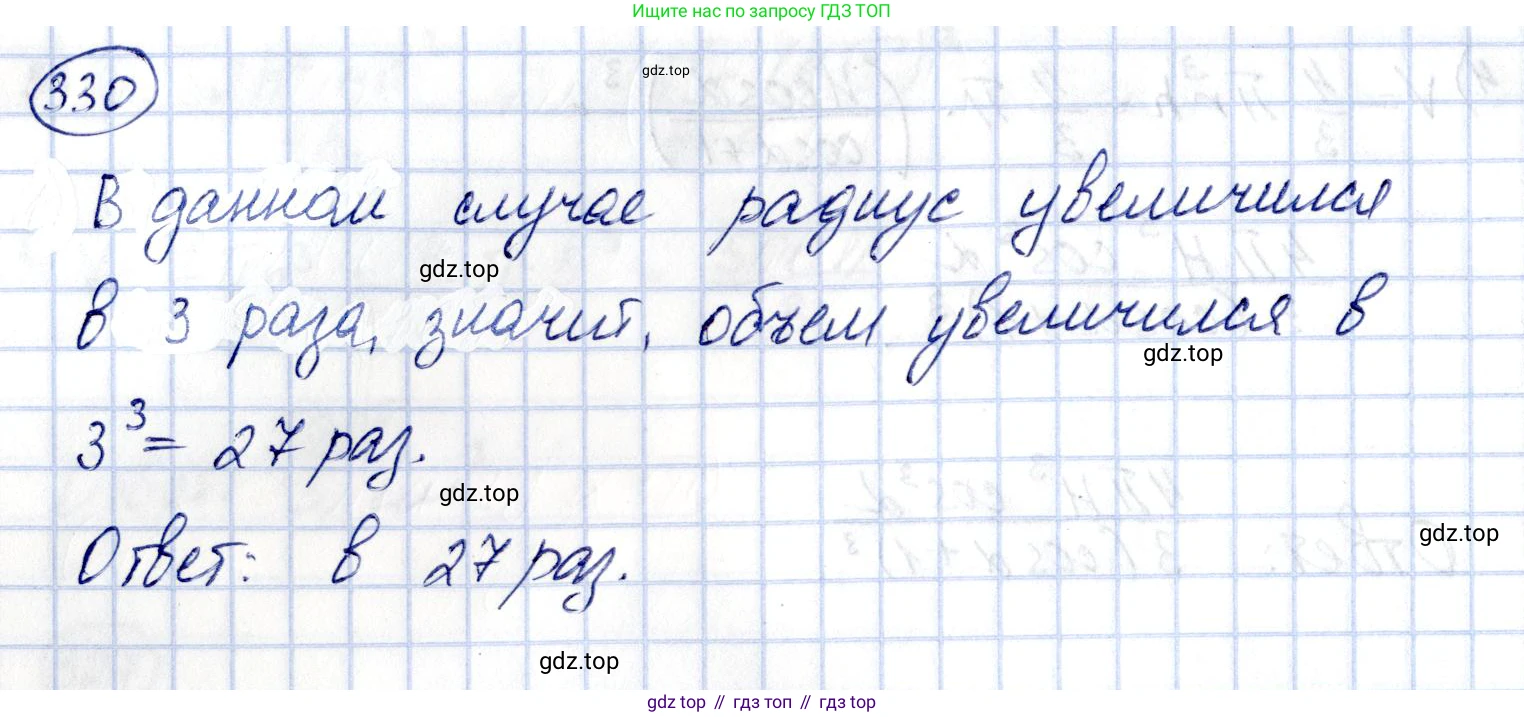 Ищите нас по запросу ГДЗ ТОП
330
gdz.top
В данном случае радиус увеличился
gdz.top
в 3 раза, значит, объем увеличился в
gdz.top
3³ = 27 раз.
gdz.top
gdz.top
Ответ: в 27 раз.
gdz.top
gdz top // гдз топ // гдз top